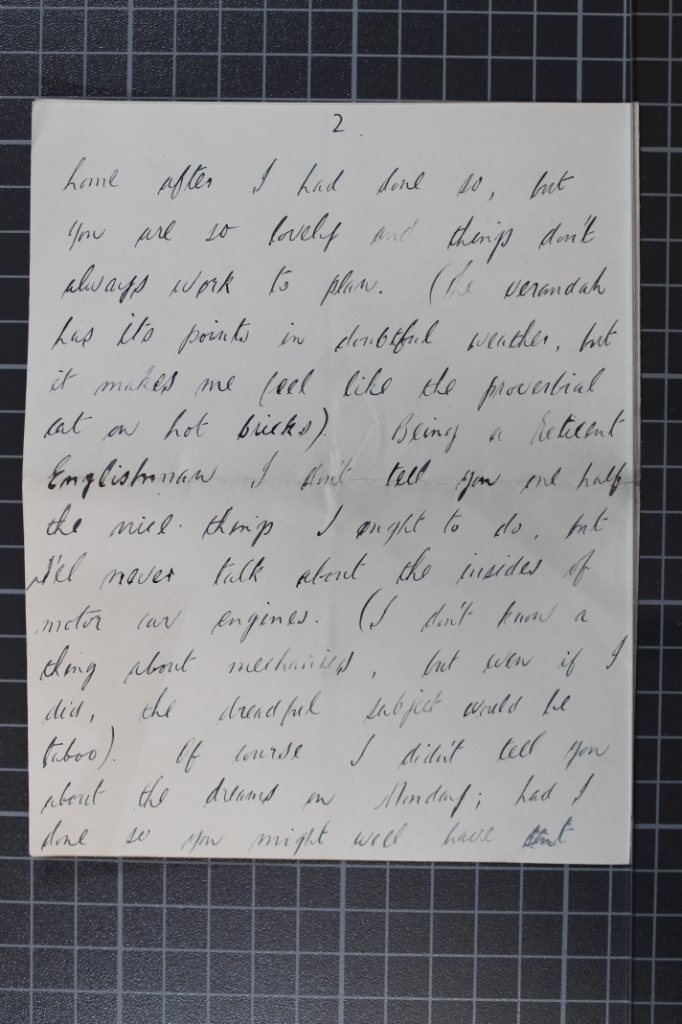 2.
home after I had done so, but
you are so lovely and things don't
always work to plan. (The verandah
has its points in doubtful weather, but
it makes me feel like the proverbial
cat on hot bricks). Being a reticent
Englishman I don't tell you one half
the nice things I ought to do, but
I'll never talk about the insides of
motor car engines. (I don't know a
thing about mechanics, but even if I
did, the dreadful subject would be
taboo). Of course I didn't tell you
about the dreams on Monday; had I
done so you might well have sent